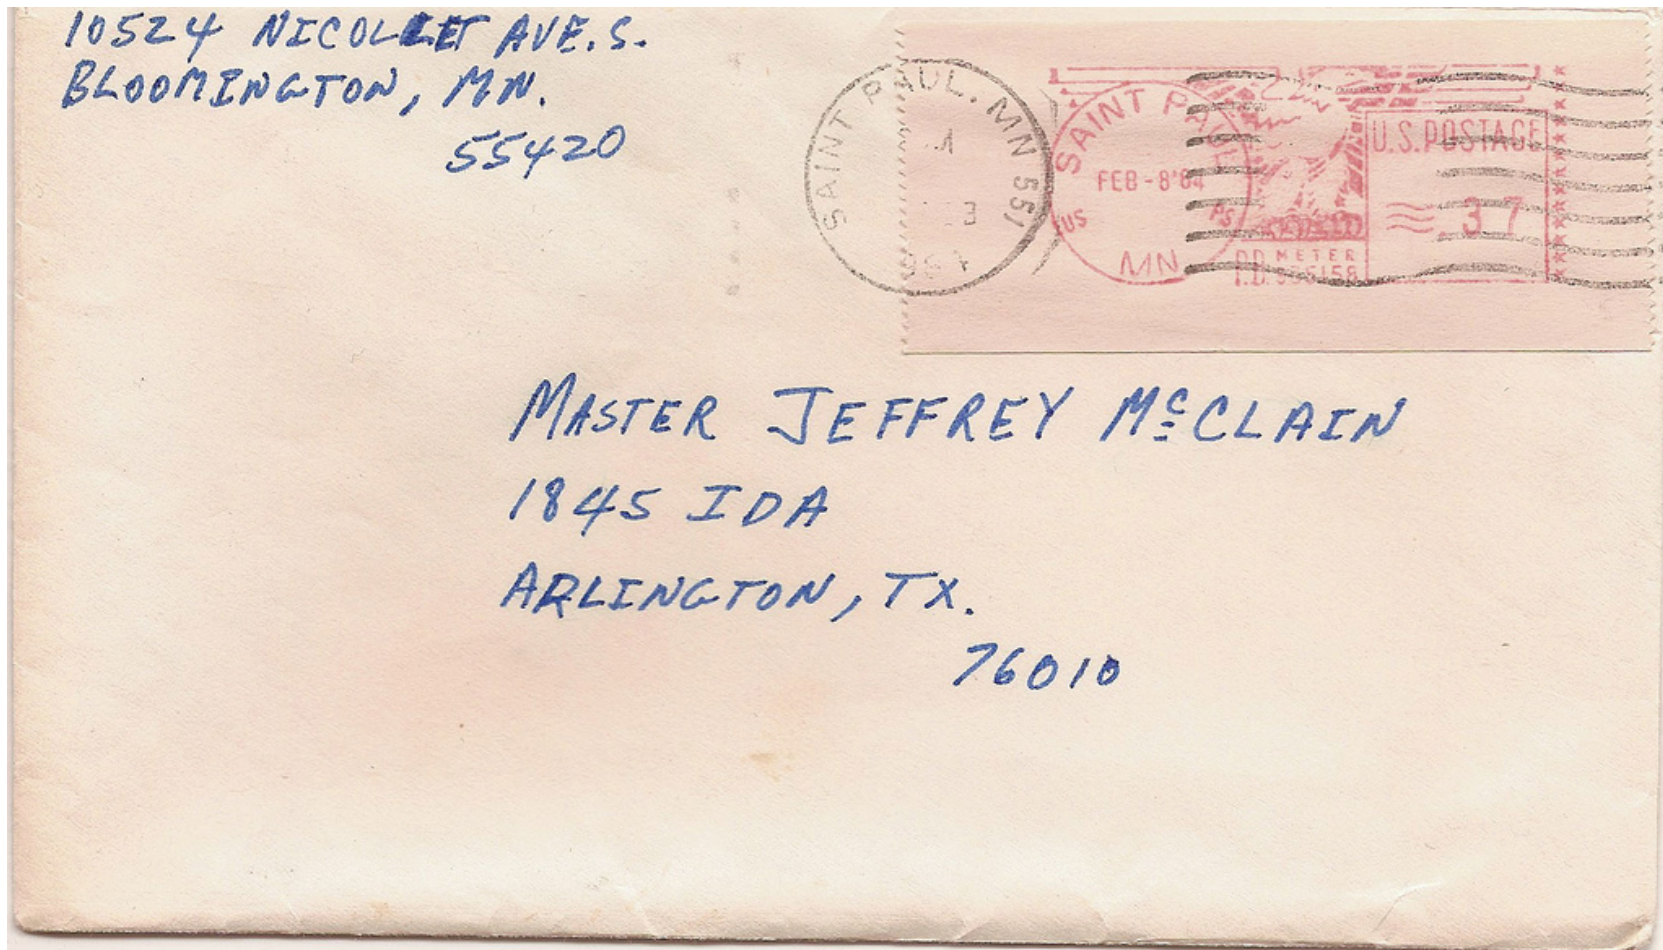 10524 NICOLLET AVE. S.
BLOOMINGTON, MN.
55420
SAINT PAUL, MN 551
SAINT PAUL
FEB-8'84
US PS
MN
P.B. METER
U.S. POSTAGE
.37
MASTER JEFFREY McCLAIN
1845 IDA
ARLINGTON, TX.
76010